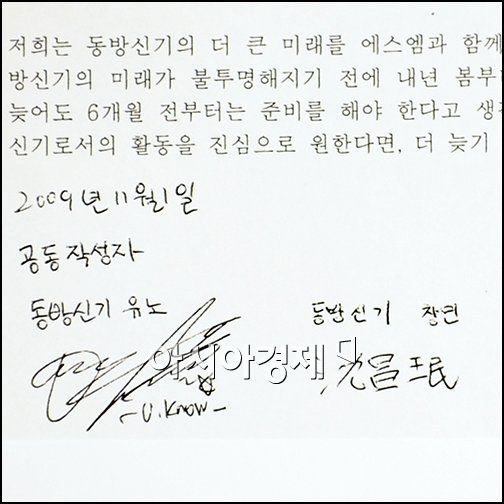 저희는 동방신기의 더 큰 미래를 에스엠과 함께
방신기의 미래가 불투명해지기 전에 내년 봄부
늦어도 6개월 전부터는 준비를 해야 한다고 생
신기로서의 활동을 진심으로 원한다면, 더 늦기
2009년 11월1일
공동작성자
동방신기 유노
동방신기 창민
아시아경제
沈昌王民
-U.Know-